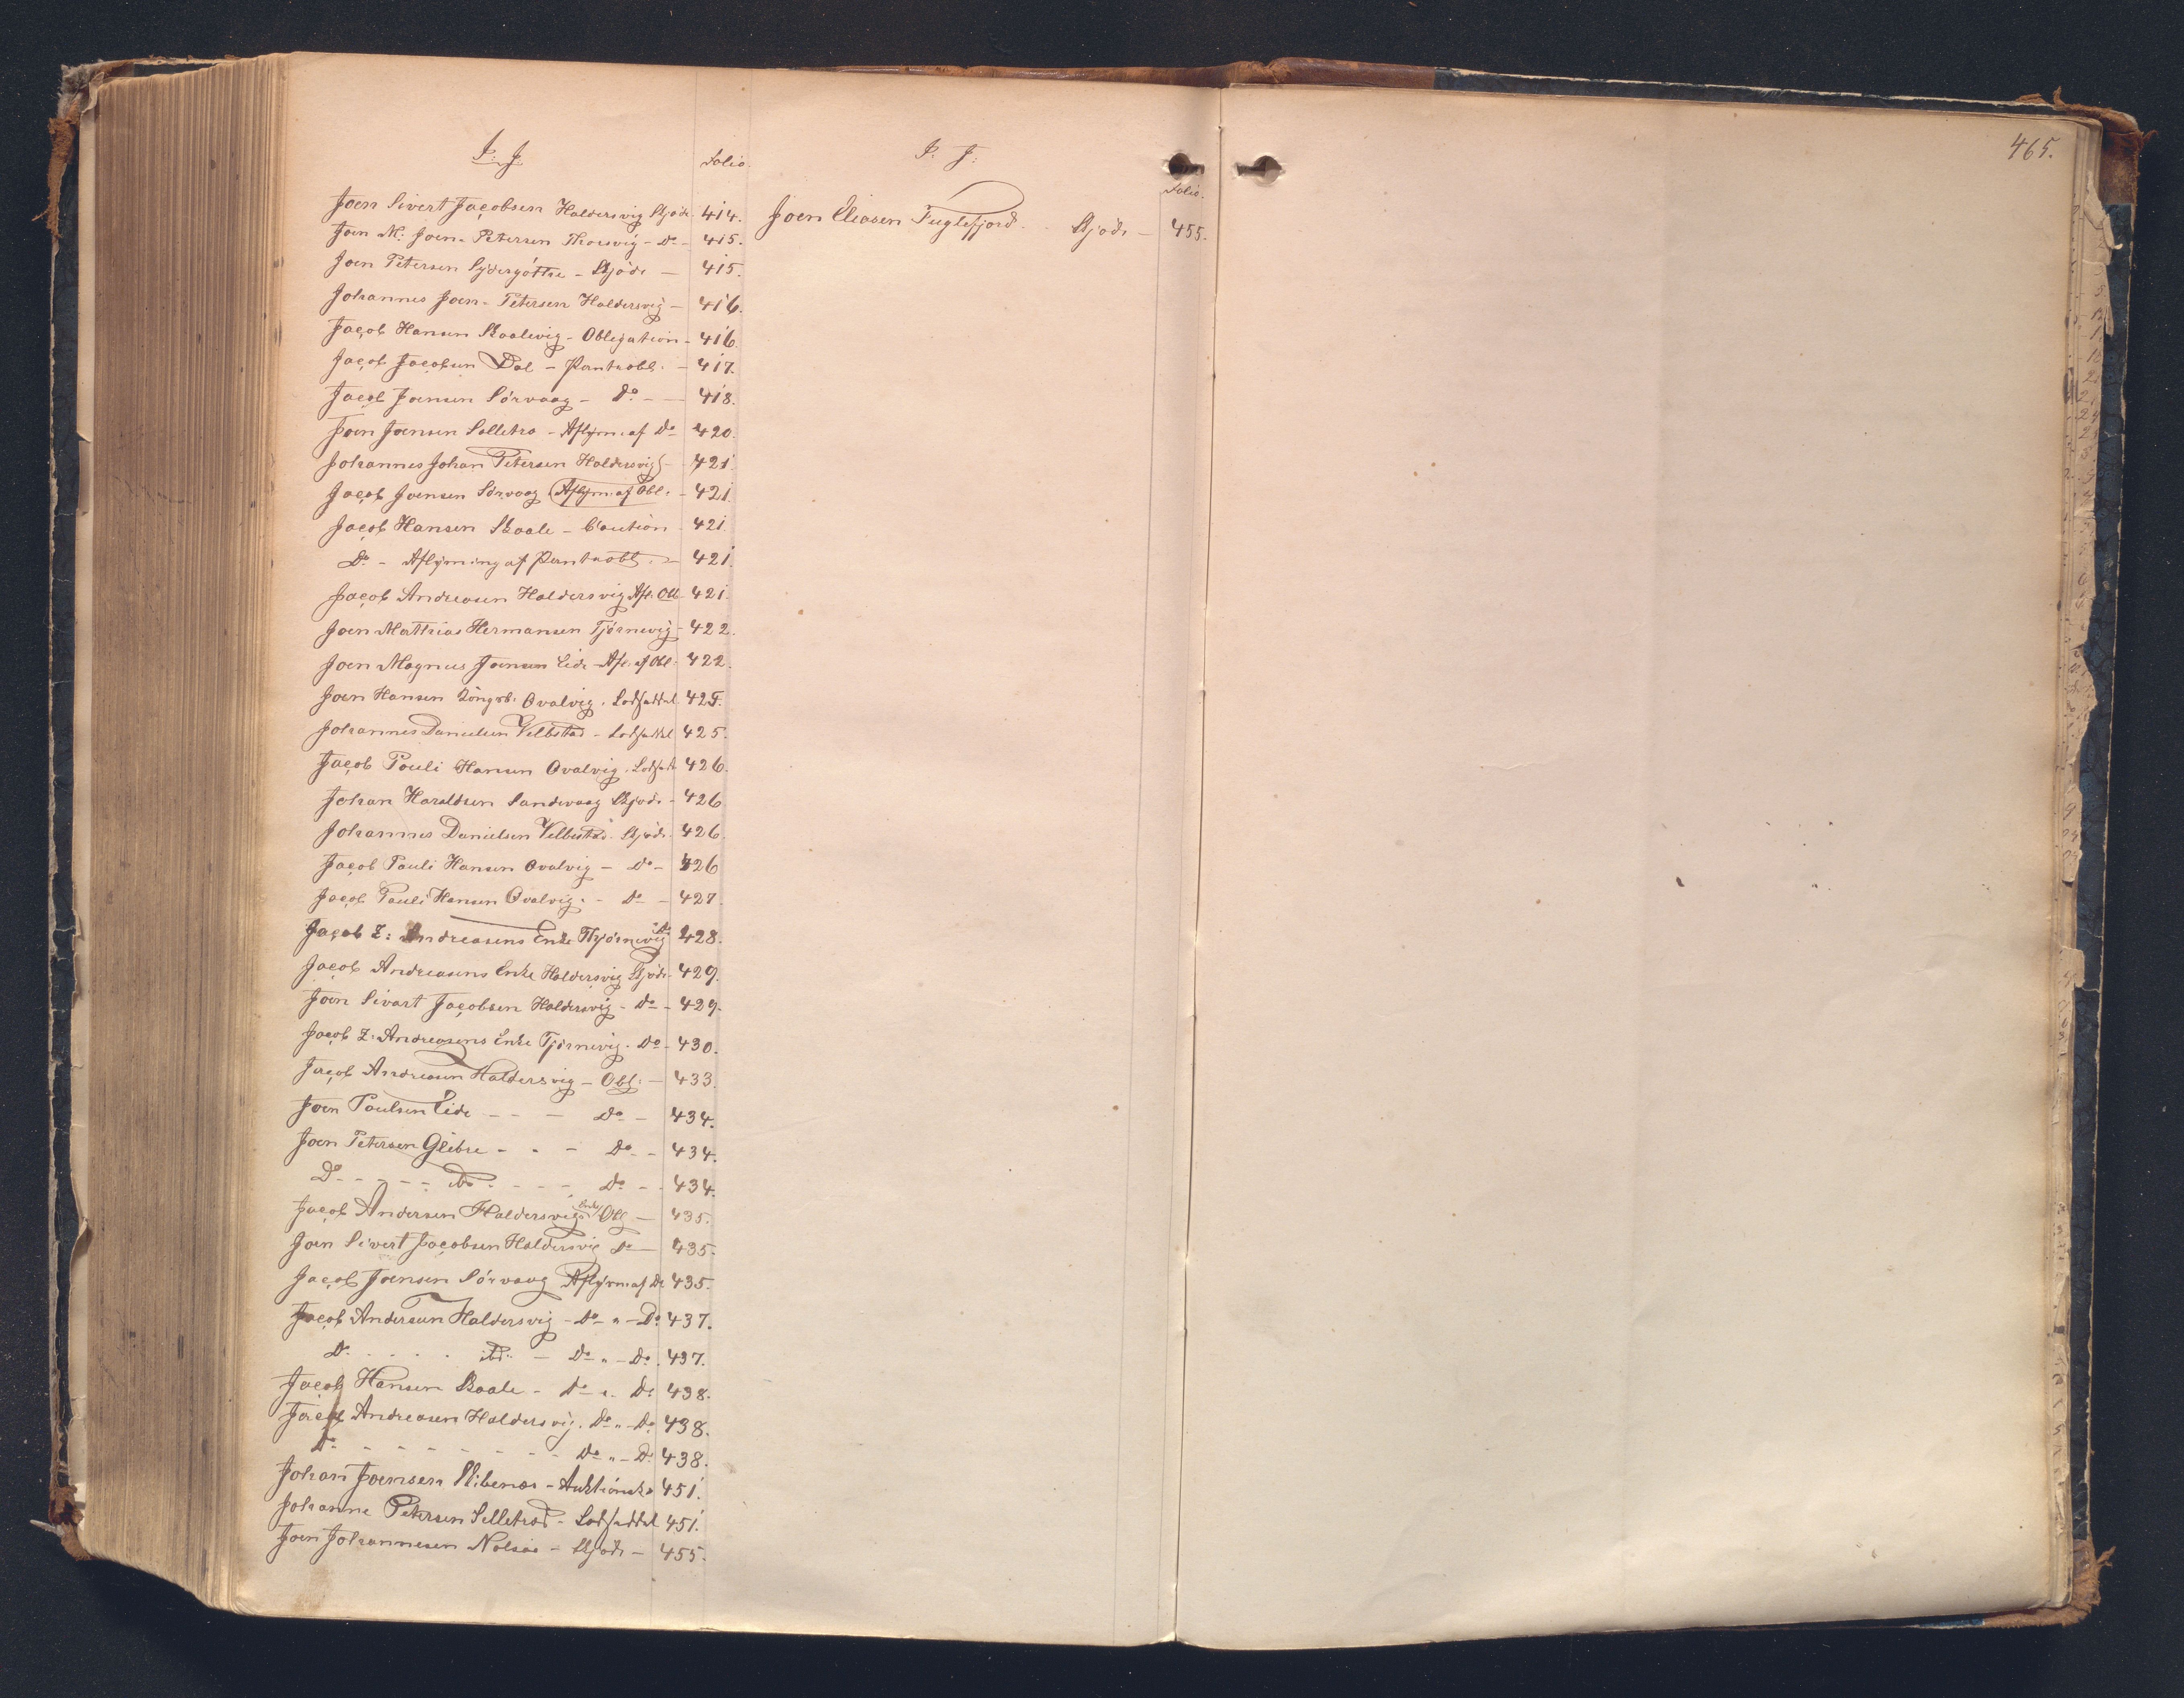 I. J.
Folio.
Joen Sivert Jacobsen Haldersvig Skjöde 414.
Joen M: Joen-Petersen Thorsvig - Do - 415.
Joen Petersen Sydergöttre - Skjöde - 415.
Johannes Joen-Petersen Haldersvig - 416.
Jacob Hansen Skaalevig - Obligation - 416.
Jacob Jacobsen Dal - Panteobl. - 417.
Jacob Joensen Sörvaag - Do - 418.
Joen Joensen Selletra - Aflysn. af Do 420.
Johannes Johan Petersen Haldersvig - 421.
Jacob Joensen Sörvaag Aflysn. af Obl. - 421.
Jacob Hansen Skaale - Caution 421.
Do - Aflysning af Panteobl. - 421.
Jacob Andreasen Haldersvig Afl. Obl. 421.
Joen Matthias Hermansen Tjörnevig - 422.
Joen Magnus Joensen Eide - Afl. af Obl. 422.
Joen Hansen Kongsb. Qvalvig. Lodseddel 425.
Johannes Danielsen Velbestad - Lodseddel 425.
Jacob Pauli Hansen Qvalvig. Lodsed 426.
Johan Haraldsen Sandevaag Skjöde - 426
Johannes Danielsen Velbestad. Skjöde. 426.
Jacob Pauli Hansen Qvalvig - Do - 426
Jacob Pauli Hansen Qvalvig. - Do - 427.
Jacob Z: Andreasens Enke Thjörnevig Do 428.
Jacob Andreasens Enke Haldersvig Skjöde - 429.
Joen Sivart Jacobsen Haldersvig - Do - 429.
Jacob Z: Andreasens Enke Tjörnevig. Do - 430.
Jacob Andreasen Haldersvig - Obl: - 433.
Joen Poulsen Eide - - - Do - 434.
Joen Petersen Glibre - - - Do - 434.
Do - - - - - ibd - - - - Do - 434.
Jacob Andersen Haldersvigs Enke Obl - 435.
Joen Sivert Jacobsen Haldersvig Do - 435.
Jacob Joensen Sörvaag Aflysn. af Do 435.
Jacob Andersen Haldersvig - Do - " - Do 437.
Do . . . . ibd: - Do - " - Do. 437.
Jacob Hansen Skaale - Do - " - Do 438.
Jacob Andreasen Haldersvig. Do - " - Do 438.
Do - - - - - - - Do - " - Do 438.
Johan Joensen Vibenæs - Auktionsk. 451.
Johanne Petersen Selletrød - Lodseddel 451.
Joen Johannesen Nolsöe - Skjöde - 455.
I. J:
Folio.
Joen Eliasen Fuglefjord. Skjöde - 455.
465.